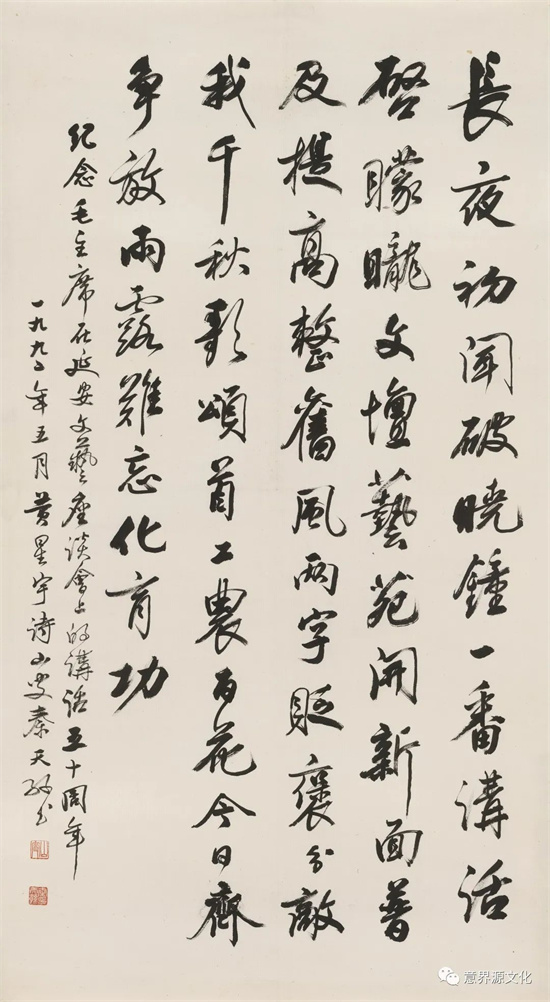 長夜初聞破曉鍾一番講話
啓矇矓文壇藝苑開新面普
及提高整舊風兩字貶褒分敵
我千秋歌頌首工農百花今日齊
争放雨露難忘化育功
纪念毛主席在延安文藝座談會上的講話五十周年
一九九二年五月黄星宇詩山叟秦天书
意界源文化